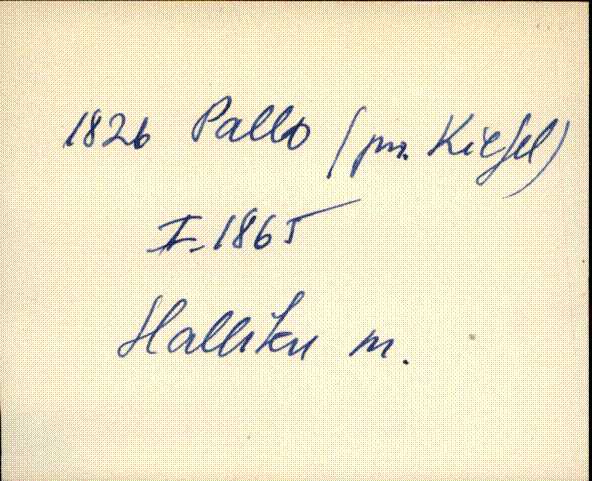 1826 Pallo (pr. Kiefel)
I. 1865
Halliku m.